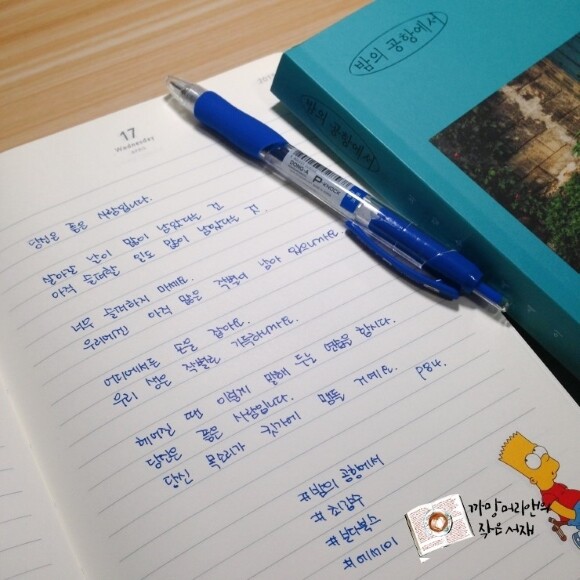 17
Wednesday
APRIL
당신은 좋은 사람입니다.
살아갈 날이 많이 남았다는 것
아직 슬퍼할 일도 많이 남았다는 것.
너무 슬퍼하지 마세요.
우리에겐 아직 많은 작별이 남아 있으니까요
손을 잡아요.
우리 삶은 작별로 가득하니까요.
때 이렇게 말해 주는 연습을 합시다.
당신은 좋은 사람입니다.
당신 목소리가 p84.
#밤의 공항에서
#최갑수
#보다북스
#에세이
DONG-A P KNOCK
밤의 공항에서
밤의 공항에서
까망머리앤의
작은 서재